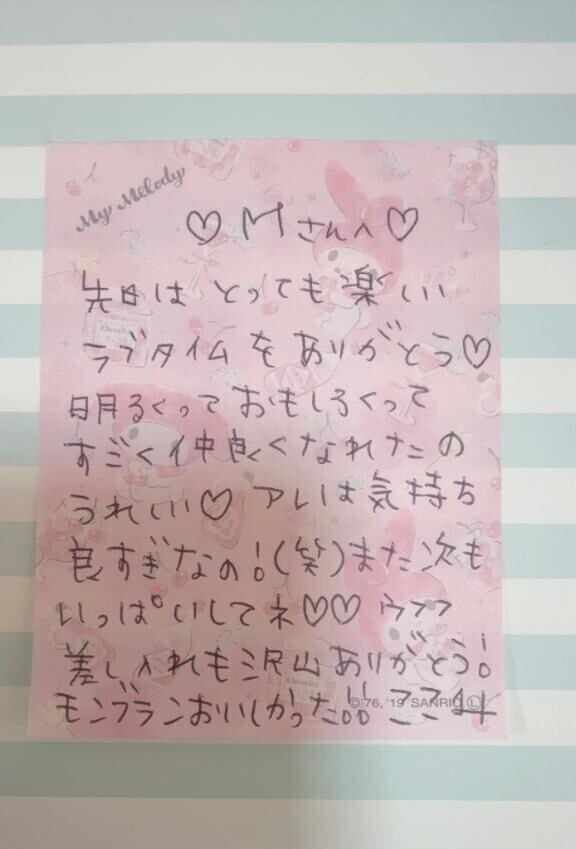 My Melody
♡Mさんへ♡
先日は とっても楽しい
ラブタイムを ありがとう♡
明るくって おもしろくって
すごく仲良くなれたの
うれしい♡ アレは気持ち
良すぎなの!(笑)また次も
いっぱいしてネ♡♡ ウフフ
差し入れも沢山ありがとう!
モンブランおいしかった!!
©'76, '19 SANRIO Ⓛ